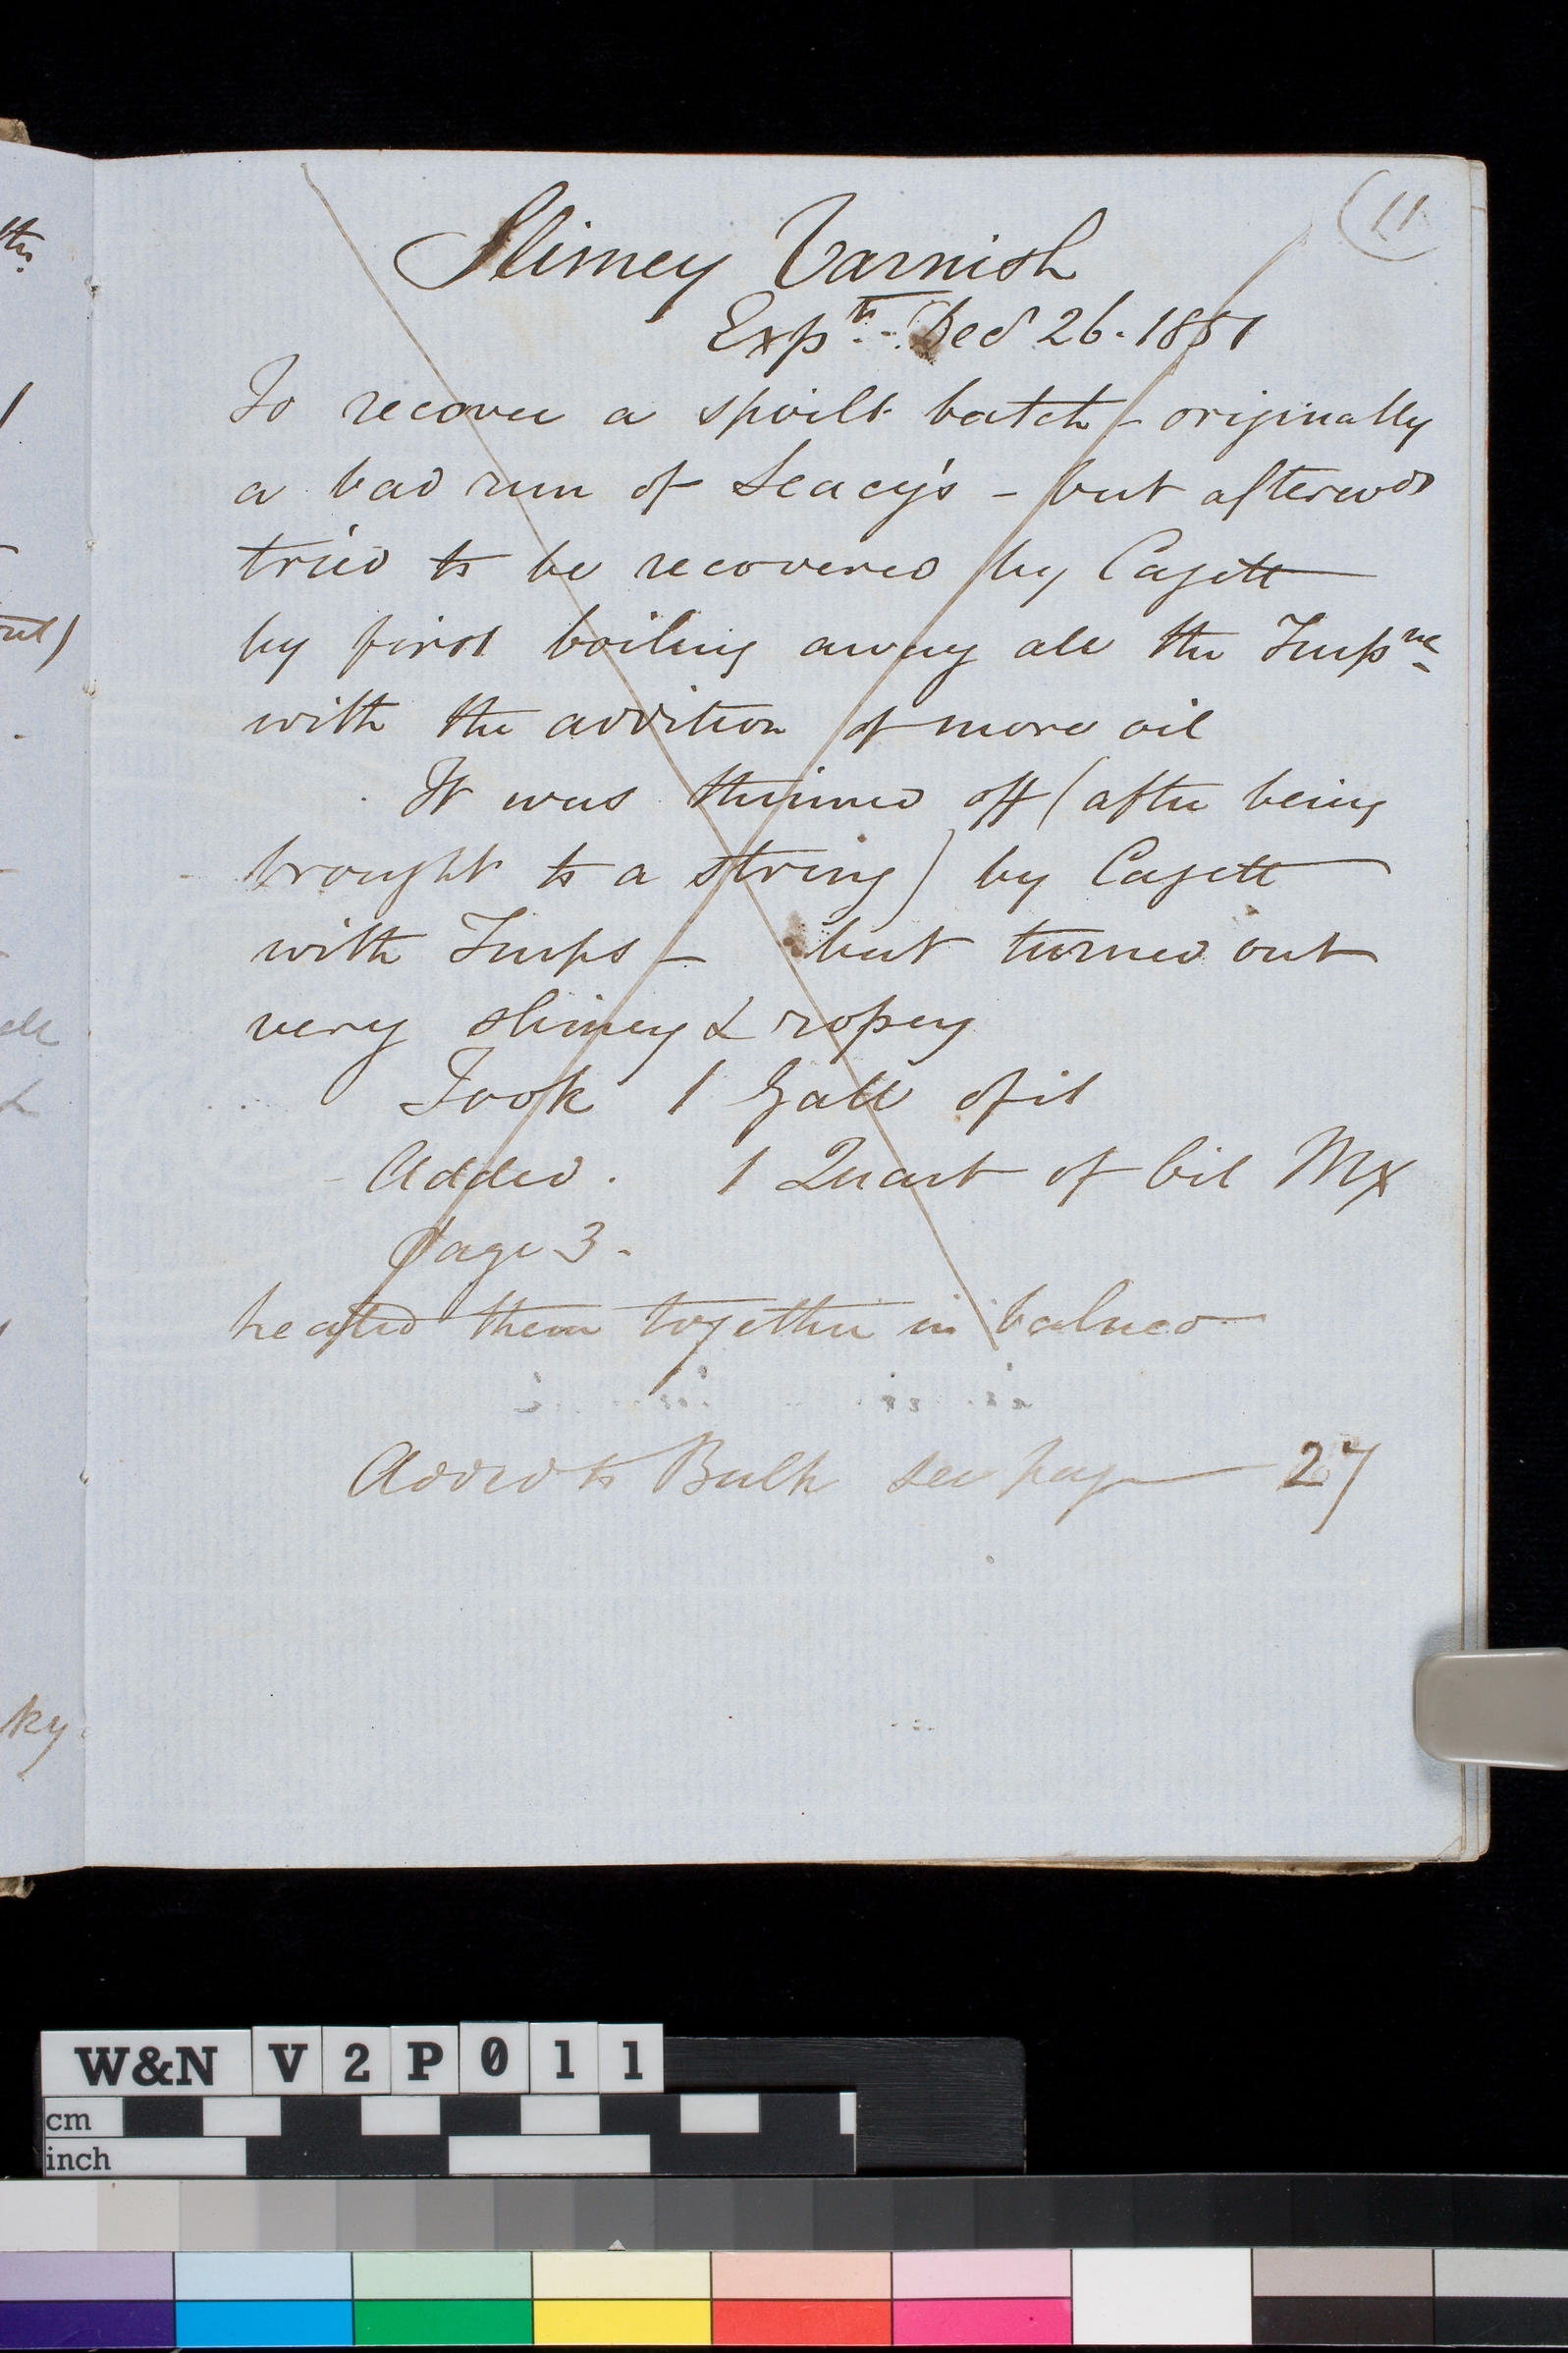 (11
Slimey Varnish
Expt. - Decr 26. 1851
To recover a spoilt batch - originally
a bad run of Leacy's - but afterwds
tried to be recovered by
by first boiling away all the Turpne
with the addition of more oil
It was thinned off (after being
brought to a string) by
with Turps - but turned out
very slimey & ropey
Took 1 Gall of it
Added. 1 Quart of Oil Mx
page 3.
heated them together in balneo
Added to Bulk see page 27
ths
ky
W&N V2P011
cm
inch